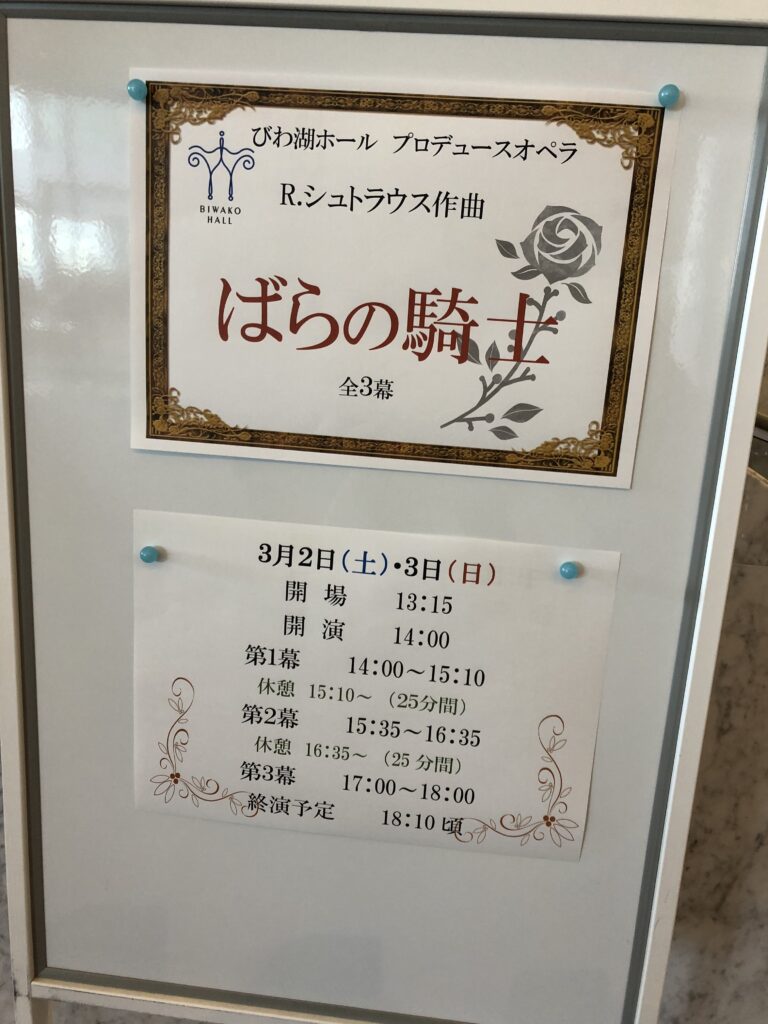 びわ湖ホール プロデュースオペラ
BIWAKO
HALL
R.シュトラウス作曲
ばらの騎士
全3幕
3月2日(土)・3日(日)
開 場 13:15
開 演 14:00
第1幕 14:00〜15:10
休憩 15:10〜 (25分間)
第2幕 15:35〜16:35
休憩 16:35〜 (25分間)
第3幕 17:00〜18:00
終演予定 18:10頃